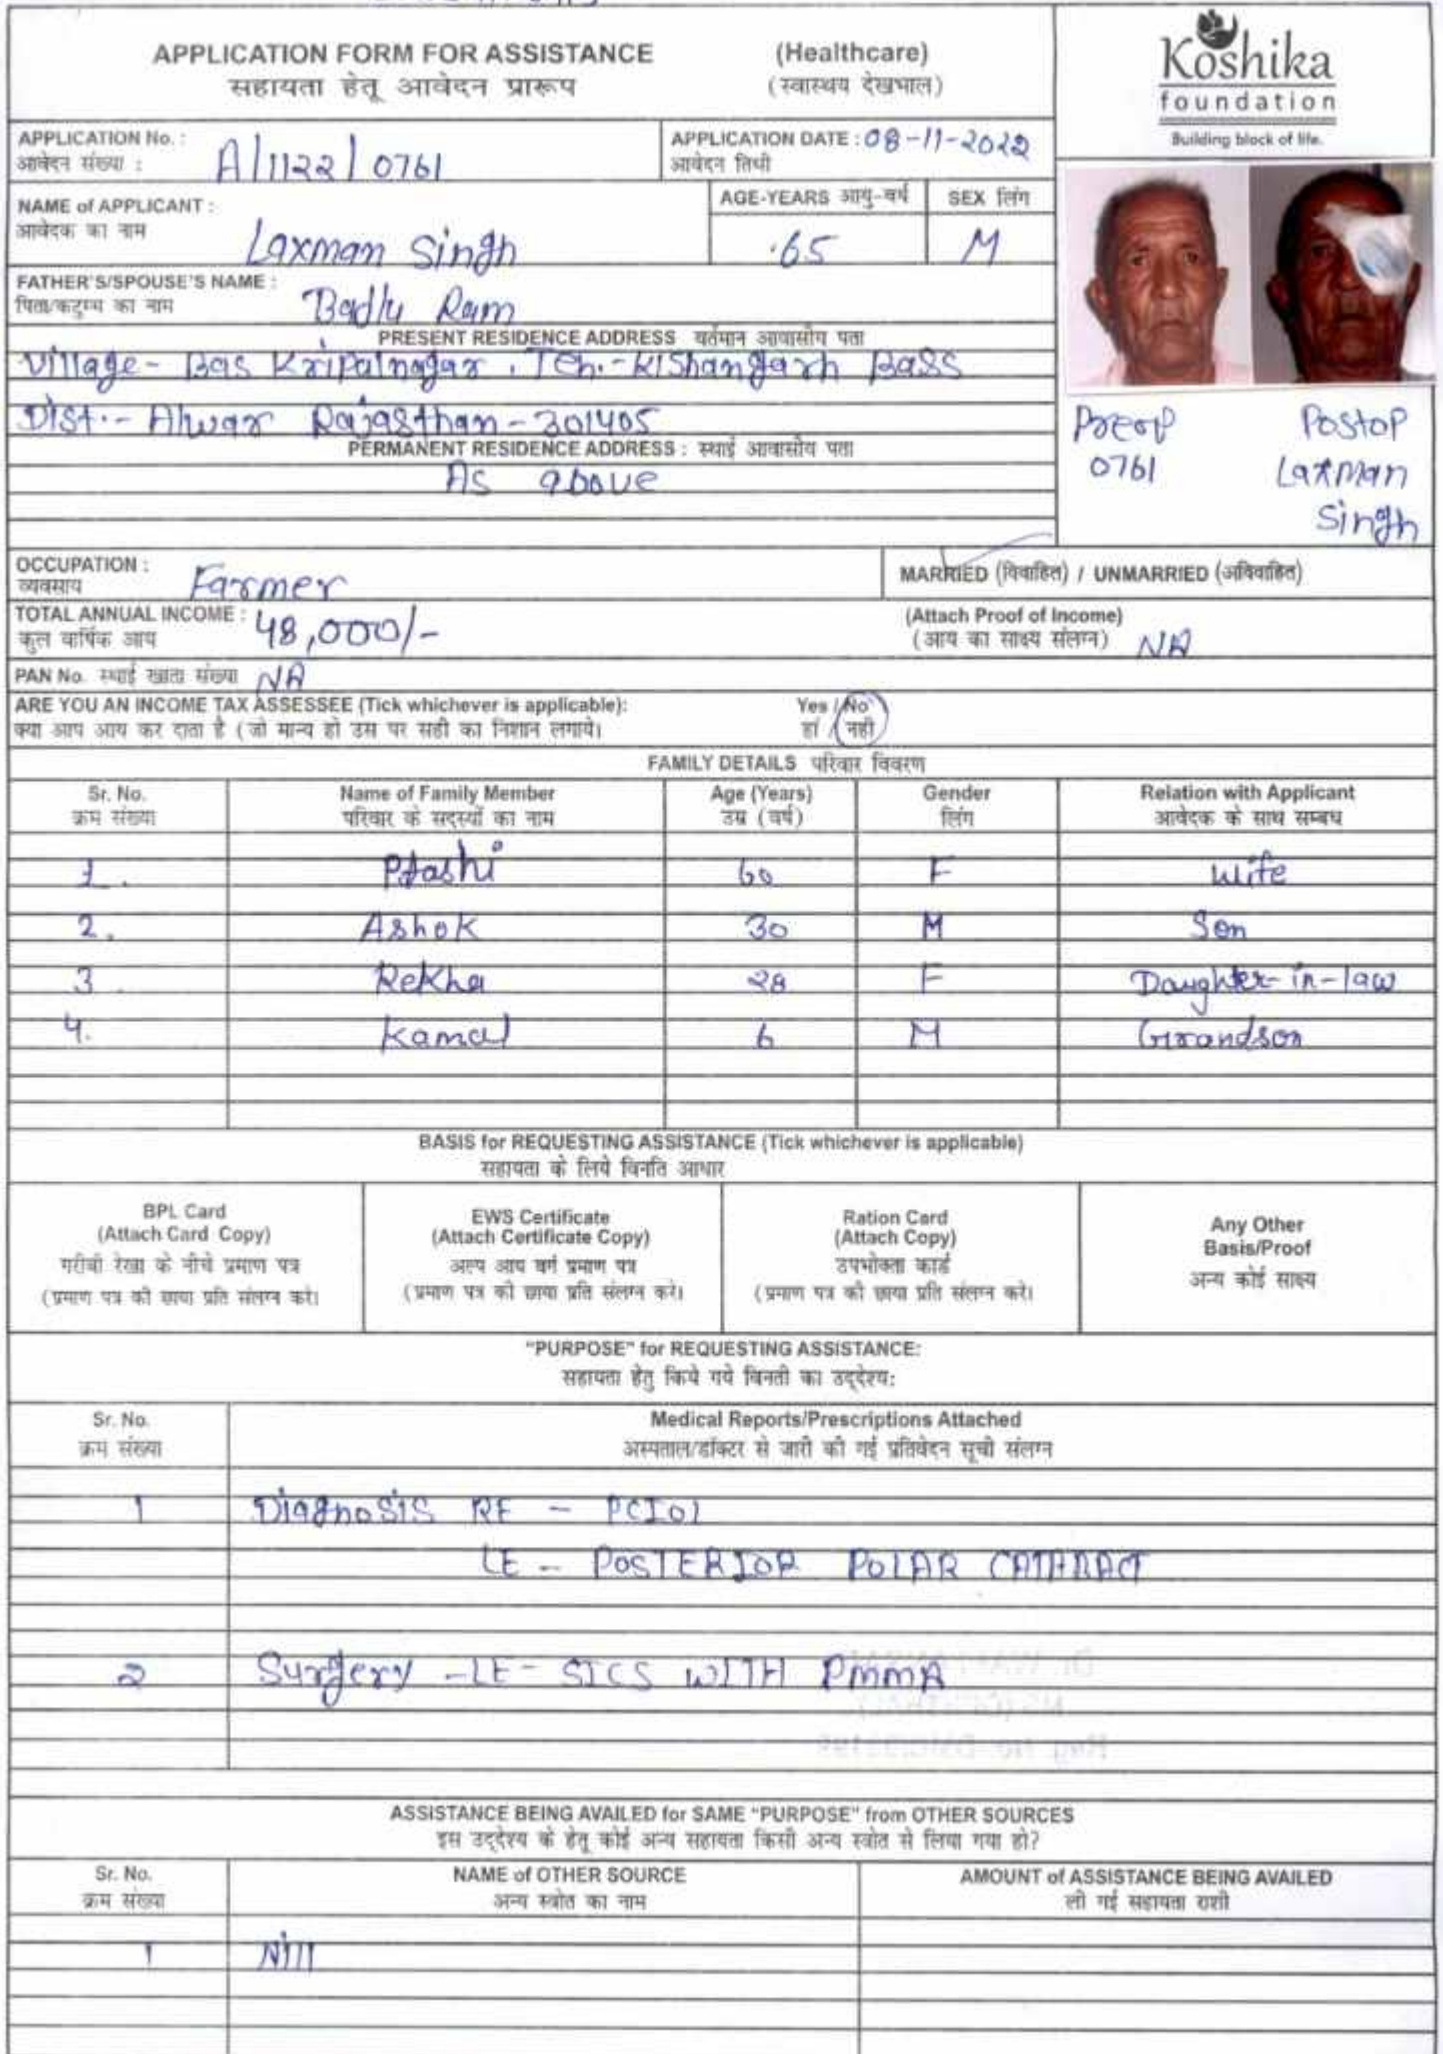 APPLICATION FORM FOR ASSISTANCE (Healthcare)
सहायता हेतू आवेदन प्रारूप (स्वास्थय देखभाल)
Koshika
foundation
Building block of life.
APPLICATION No. : A/1122/0761
आवेदन संख्या :
APPLICATION DATE : 08-11-2022
आवेदन तिथी
NAME of APPLICANT : Laxman Singh
आवेदक का नाम
AGE-YEARS आयु-वर्ष 65
SEX लिंग M
FATHER'S/SPOUSE'S NAME : Badlu Ram
पिता/कटुम्ब का नाम
PRESENT RESIDENCE ADDRESS वर्तमान आवासीय पता
Village - Bas Kripalnagar, Teh.- Kishangarh Bass
Dist.- Alwar Rajasthan - 301405
PERMANENT RESIDENCE ADDRESS : स्थाई आवासीय पता
As above
Preop Postop
0761 Laxman
Singh
OCCUPATION : Farmer
व्यवसाय
MARRIED (विवाहित) / UNMARRIED (अविवाहित)
TOTAL ANNUAL INCOME : 48,000/-
कुल वार्षिक आय
(Attach Proof of Income)
(आय का साक्ष्य संलग्न) NA
PAN No. स्थाई खाता संख्या NA
ARE YOU AN INCOME TAX ASSESSEE (Tick whichever is applicable): Yes / No
क्या आप आय कर दाता है (जो मान्य हो उस पर सही का निशान लगाये। हां / नही
FAMILY DETAILS परिवार विवरण
Sr. No. Name of Family Member Age (Years) Gender Relation with Applicant
क्रम संख्या परिवार के सदस्यों का नाम उम्र (वर्ष) लिंग आवेदक के साथ सम्बध
1. 60 F Wife
2. Ashok 30 M Son
3 Rekha 28 F Daughter-in-law
4. Kamal 6 M Grandson
BASIS for REQUESTING ASSISTANCE (Tick whichever is applicable)
सहायता के लिये विनति आधार
BPL Card
(Attach Card Copy)
गरीबी रेखा के नीचे प्रमाण पत्र
(प्रमाण पत्र की छाया प्रति संलग्न करे।
EWS Certificate
(Attach Certificate Copy)
अल्प आय वर्ग प्रमाण पत्र
(प्रमाण पत्र की छाया प्रति संलग्न करे।
Ration Card
(Attach Copy)
उपभोक्ता कार्ड
(प्रमाण पत्र की छाया प्रति संलग्न करे।
Any Other
Basis/Proof
अन्य कोई साक्ष्य
"PURPOSE" for REQUESTING ASSISTANCE:
सहायता हेतु किये गये विनती का उद्देश्य:
Sr. No. Medical Reports/Prescriptions Attached
क्रम संख्या अस्पताल/डॉक्टर से जारी की गई प्रतिवेदन सूची संलग्न
1 Diagnosis RE - PCIOL
LE - POSTERIOR POLAR CATARACT
2 Surgery - LE - SICS WITH PMMA
ASSISTANCE BEING AVAILED for SAME "PURPOSE" from OTHER SOURCES
इस उद्देश्य के हेतु कोई अन्य सहायता किसी अन्य स्त्रोत से लिया गया हो?
Sr. No. NAME of OTHER SOURCE AMOUNT of ASSISTANCE BEING AVAILED
क्रम संख्या अन्य स्त्रोत का नाम ली गई सहायता राशी
1 Nill